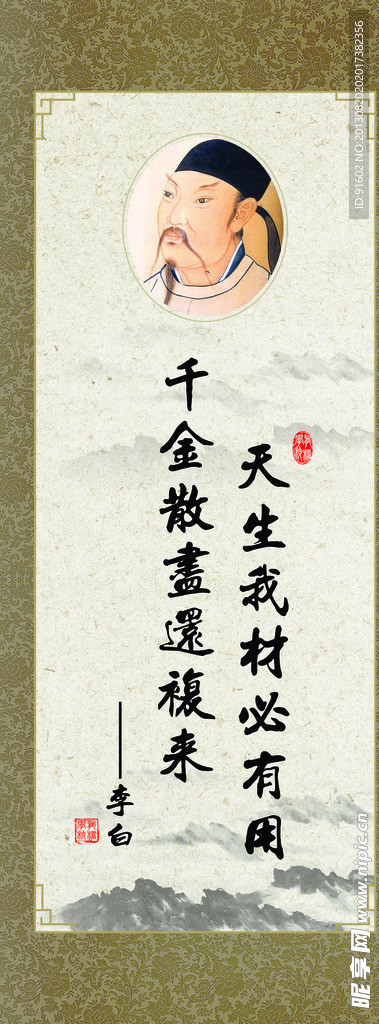 天生我材必有用
千金散盡還複来
——李白
ID:91602 NO:20130820202017382356
昵享网 www.nipic.cn